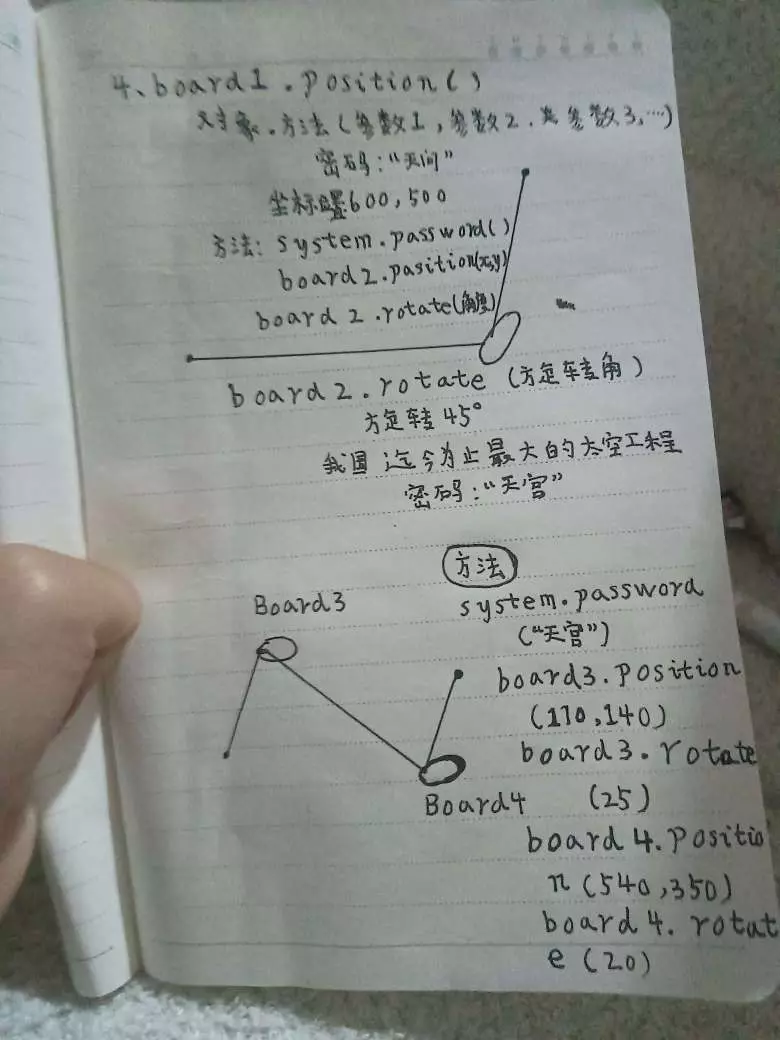 4、board1.position()
对象.方法(参数1,参数2.参数3,…)
密码:“天问”
坐标置600,500
方法: system.password()
board2.pasition(x,y)
board2.rotate(角度)
board2.rotate (方定转角)
方定转45°
我国迄今为止最大的太空工程
密码:“天宫”
方法
system.password
(“天宫”)
Board3
board3.position
(110,140)
board3.rotate
(25)
Board4
board4.positio
n(540,350)
board4.rotat
e(20)